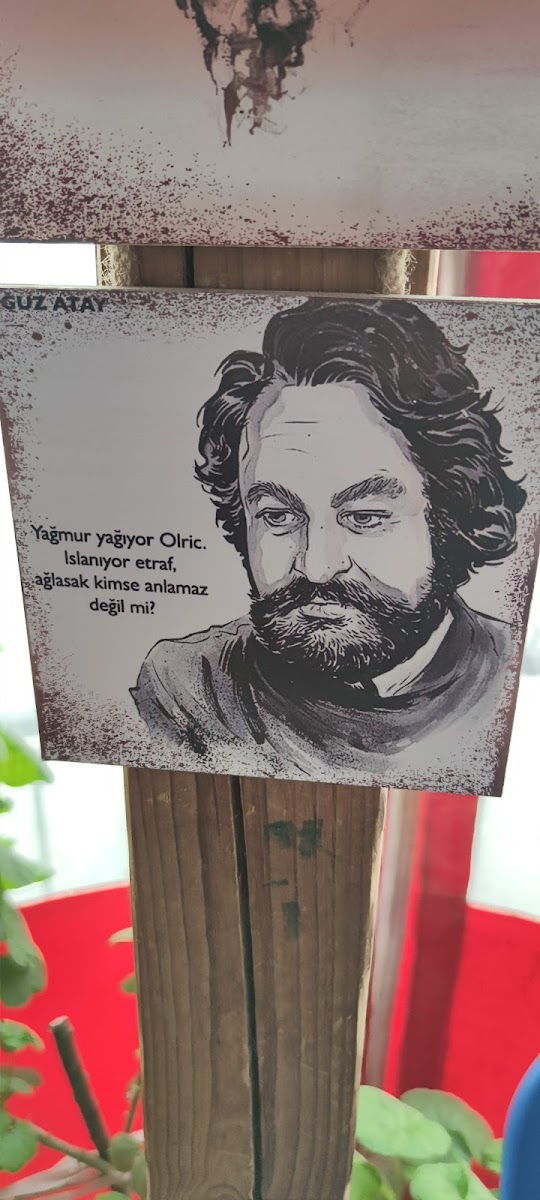 ĞUZ ATAY
Yağmur yağıyor Olric.
Islanıyor etraf,
ağlasak kimse anlamaz
değil mi?